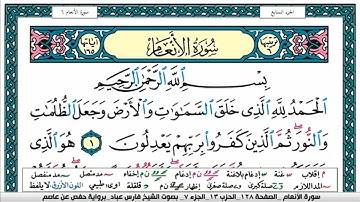 سورة الأنعام ٦
الجزء السابع
ترتيبها ٦
سُورَةُ الأَنْعَامِ
آياتها ١٦٥
بِسْمِ اللَّهِ الرَّحْمَٰنِ الرَّحِيمِ
الْحَمْدُ لِلَّهِ الَّذِي خَلَقَ السَّمَاوَاتِ وَالْأَرْضَ وَجَعَلَ الظُّلُمَاتِ
وَالنُّورَ ثُمَّ الَّذِينَ كَفَرُوا بِرَبِّهِمْ يَعْدِلُونَ ١ هُوَ الَّذِي
سورة الأنعام _ الصفحة ١٢٨ _ الحزب ١٣ _ الجزء ٧ _ بصوت الشيخ فارس عباد _ برواية حفص عن عاصم